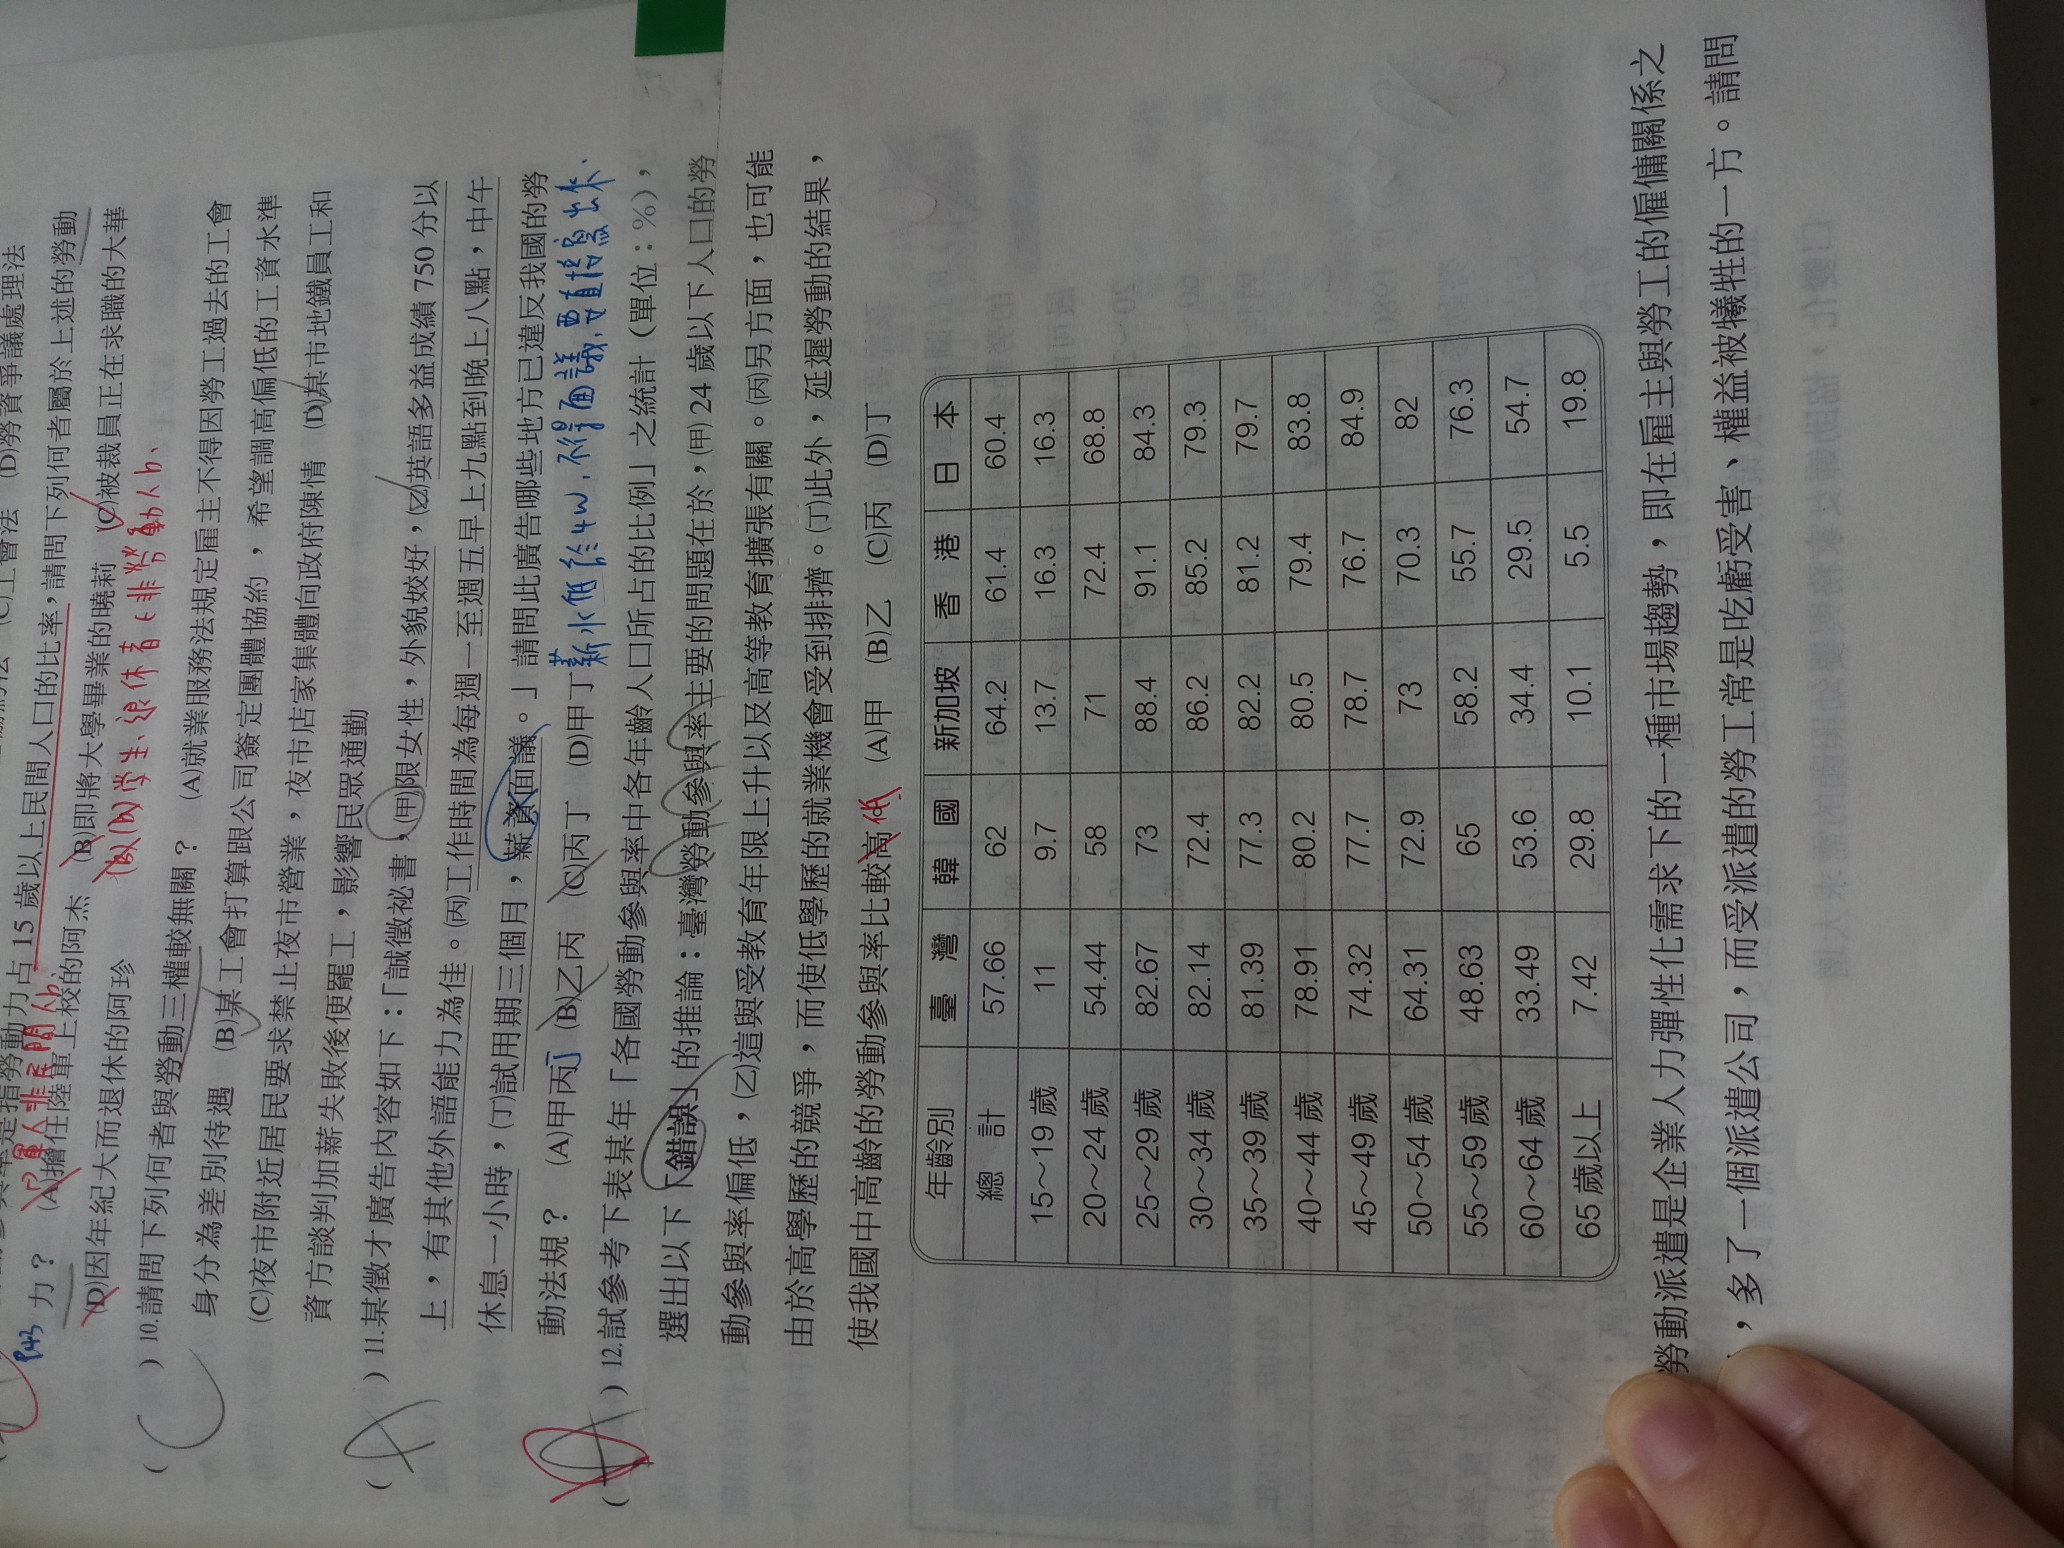 勞動力占 15 歲以上民間人口的比率，請問下列何者屬於上述的勞動
P43 力？ (A)擔任陸軍上校的阿杰 (B)即將大學畢業的曉莉 (C)被裁員正在求職的大華
(D)因年紀大而退休的阿珍
(B)(D)學生、退休者非勞動人口、
( C ) 10.請問下列何者與勞動三權較無關？ (A)就業服務法規定雇主不得因勞工過去的工會
身分為差別待遇 (B)某工會打算跟公司簽定團體協約，希望調高偏低的工資水準
(C)夜市附近居民要求禁止夜市營業，夜市店家集體向政府陳情 (D)某市地鐵員工和
資方談判加薪失敗後便罷工，影響民眾通勤
( A ) 11.某徵才廣告內容如下：「誠徵祕書，(甲)限女性，外貌姣好，(乙)英語多益成績 750 分以
上，有其他外語能力為佳。(丙)工作時間為每週一至週五早上九點到晚上八點，中午
休息一小時，(丁)試用期三個月，薪資面議。」請問此廣告哪些地方已違反我國的勞
動法規？ (A)甲丙丁 (B)乙丙 (C)丙丁 (D)甲丁
薪水低於4W，不得面議，要直接寫出來、
( ) 12.試參考下表某年「各國勞動參與率中各年齡人口所占的比例」之統計（單位：％），
選出以下「錯誤」的推論：臺灣勞動參與率主要的問題在於，(甲) 24 歲以下人口的勞
動參與率偏低，(乙)這與受教育年限上升以及高等教育擴張有關。(丙)另方面，也可能
由於高學歷的競爭，而使低學歷的就業機會受到排擠。(丁)此外，延遲勞動的結果，
使我國中高齡的勞動參與率比較高低 (A)甲 (B)乙 (C)丙 (D)丁
年齡別 臺灣 韓國 新加坡 香港 日本
總計 57.66 62 64.2 61.4 60.4
15～19 歲 11 9.7 13.7 16.3 16.3
20～24 歲 54.44 58 71 72.4 68.8
25～29 歲 82.67 73 88.4 91.1 84.3
30～34 歲 82.14 72.4 86.2 85.2 79.3
35～39 歲 81.39 77.3 82.2 81.2 79.7
40～44 歲 78.91 80.2 80.5 79.4 83.8
45～49 歲 74.32 77.7 78.7 76.7 84.9
50～54 歲 64.31 72.9 73 70.3 82
55～59 歲 48.63 65 58.2 55.7 76.3
60～64 歲 33.49 53.6 34.4 29.5 54.7
65 歲以上 7.42 29.8 10.1 5.5 19.8
勞動派遣是企業人力彈性化需求下的一種市場趨勢，即在雇主與勞工的僱傭關係之
，多了一個派遣公司，而受派遣的勞工常是吃虧受害、權益被犧牲的一方。請問